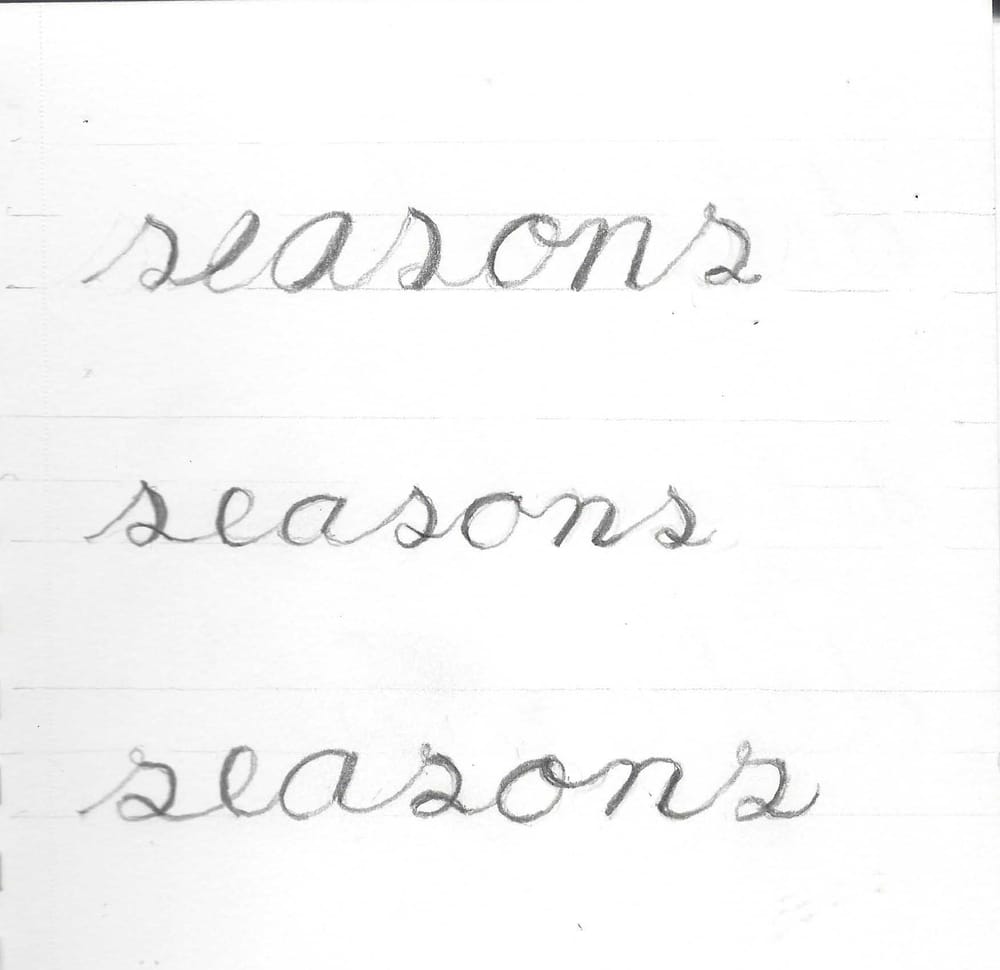 seasons
seasons
seasons